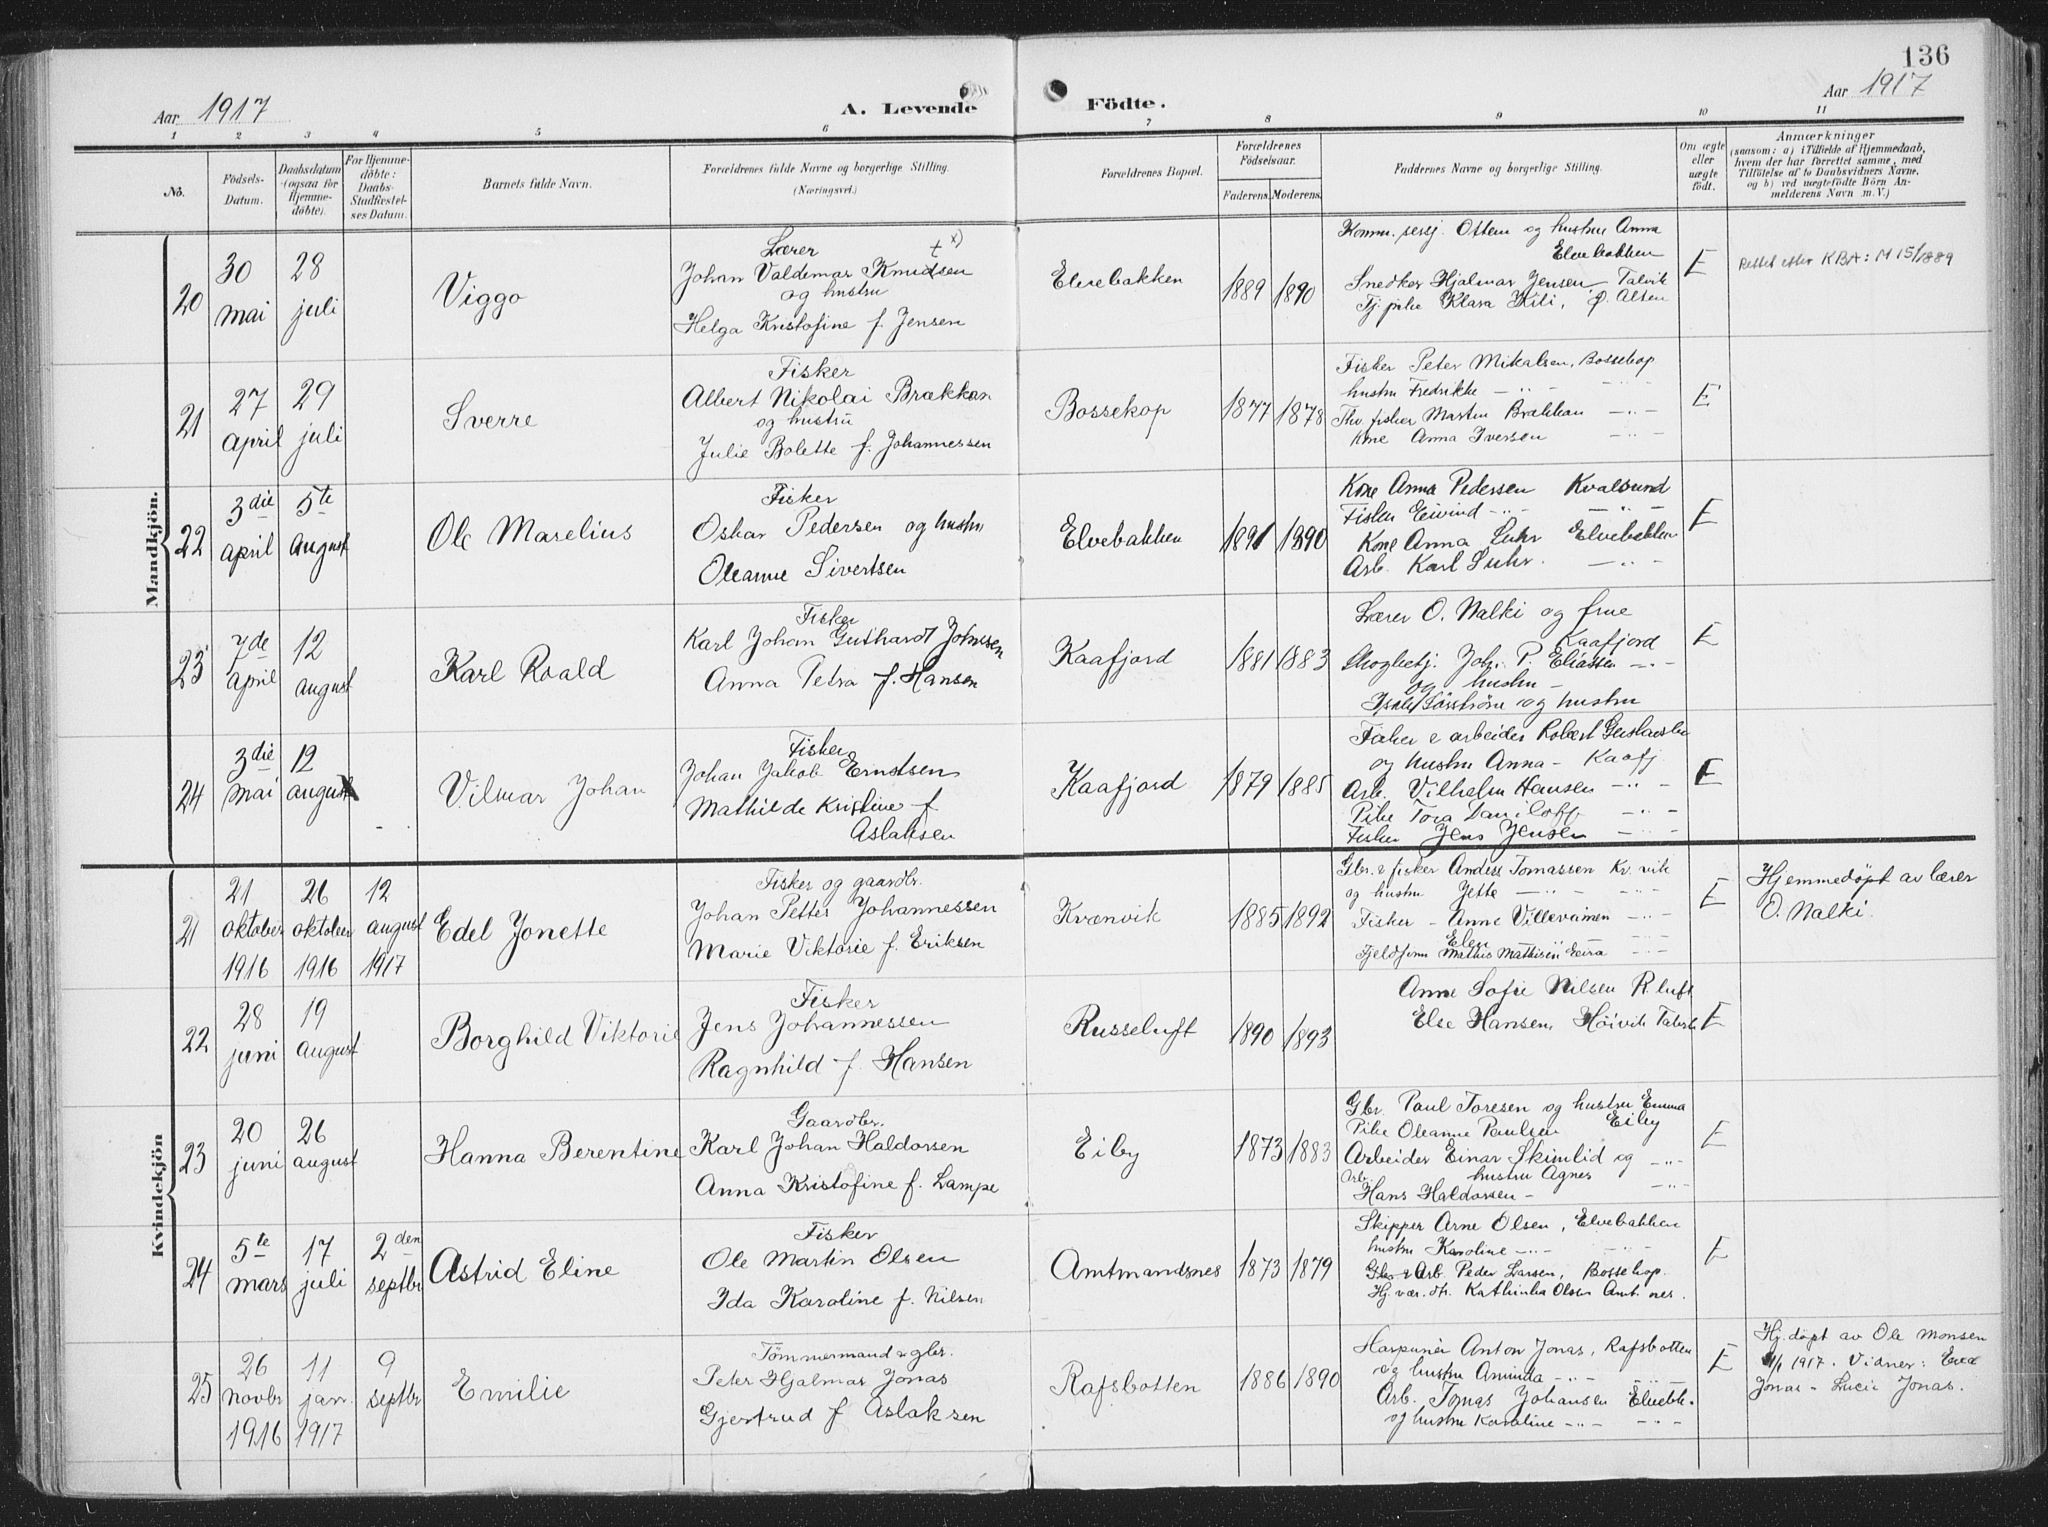 136
Aar 1917
A. Levende
Födte.
Aar 1917
1 2 3 4 5 6 7 8 9 10 11
No.
Födsels-
Datum.
Daabsdatum
(ogsaa for
Hjemme-
döbte).
For Hjemme-
döbte:
Daabs-
Stadfæstel-
ses Datum.
Barnets fulde Navn.
Forældrenes fulde Navne og borgerlige Stilling.
(Næringsvei.)
Forældrenes Bopæl.
Forældrenes
Födselsaar.
Faderens. Moderens.
Faddernes Navne og borgerlige Stilling.
Om ægte
eller
uægte
födt.
Anmærkninger
(saasom: a) i Tilfælde af Hjemmedaab,
hvem der har forrettet samme, med
Tilföielse af to Daabsvidners Navne,
og b) ved uægtefödte Börn An-
melderens Navn m. V.)
Mandkjön.
20
30
mai
28
juli
Viggo
Lærer
+ x)
Johan Valdemar Knudsen
og hustru
Helga Kristofine f. Jensen
Elvebakken
1889 1890
Ostem og hustru Anna
Elvebakken
Snedker Hjalmar Jensen Talvik
Klara Kiti,
E
Rettet etter KBA: M 15/1889
21
27
april
29
juli
Sverre
Fisker
Albert Nikolai Brækkan
og hustru
Julie Bolette f. Johannessen
Bossekop
1877 1878
Fisker Peter Mikalsen, Bossekop
hustru Fredrikke — " —
fisker Martin Brækkan — " —
Kone Anna Iversen — " —
E
22
3die
april
5te
august
Ole Marelius
Fisker
Oskar Pedersen og hustru
Oleanne Sivertsen
Elvebakken
1891 1890
Kone Anna Pedersen Kvalsund
Fisker Eivind — " — — " —
Kone Anna Suhr Elvebakken
Arb. Karl Suhr. — " —
E
23
7de
april
12
august
Karl Roald
Fisker
Karl Johan Guthardt Johnsen
Anna Petra f. Hansen
Kaafjord
1881 1883
Lærer O. Nalki og frue
Kaafjord
Joh. P. Eliassen — " —
og hustru —
og hustru
E
24
3die
mai
12
august
Vilmar Johan
Fisker
Johan Jakob Erndtsen
Mathilde Kristine f
Aslaksen
Kaafjord
1879 1885
Fisker & arbeider Robert
og hustru Anna — Kaafj.
Arb. Vilhelm Hansen — " —
Pike Tora Daniloff — " —
Fisker Jens Jensen — " —
E
Kvindekjön
21
21
oktober
1916
26
oktober
1916
12
august
1917
Edel Jonette
Fisker og gaardbr.
Johan Petter Johannessen
Marie Viktorie f. Eriksen
Kvænvik
1885 1892
Gbr. & fisker Anders Tomassen Kv. vik
og hustru Jette — " — — " —
Fisker — Anne Villevainen — " —
Elen
Fjeldfinn Mathis Mathisen Eira — " —
E
Hjemmedøpt av lærer
O. Nalki.
22
28
juni
19
august
Borghild Viktorie
Fisker
Jens Johannessen
Ragnhild f. Hansen
Russeluft
1890 1893
Anne Sofie Nilsen R. luft
Else Hansen, Höivik Talvik
E
23
20
juni
26
august
Hanna Berentine
Gaardbr.
Karl Johan Haldorsen
Anna Kristofine f. Lampe
Eiby
1873 1883
Gbr. Paul Toresen og hustru Emma
Pike Oleanne Paulsen Eiby
Arbeider Einar Skimlid og — " —
hustru Agnes
Arb.
Hans Haldorsen — — " —
E
24
5te
mars
17
juli
2den
septbr
Astrid Eline
Fisker
Ole Martin Olsen
Ida Karoline f. Nilsen
Amtmandsnes
1873 1879
Skipper Arne Olsen, Elvebakken
hustru Karoline — " — — " —
Gbr & Arb. Peder Larsen, Bossekop.
Hj. vær. dt. Kathinka Olsen Amt. nes.
E
25
26
novbr
1916
11
jan.
1917
9
septbr
Emilie
Tömmermand & gbr.
Peter Hjalmar Jonas
Gjertrud f Aslaksen
Rafsbotten
1886 1890
Harpunér Anton Jonas, Rafsbotten
og hustru Aminda — " — — " —
Arb. Tomas Johansen Elvebk.
og hustru Karoline — " — — " —
E
Hj. döpt av Ole Monsen
1917. Vidner:
Jonas — Lucie Jonas.